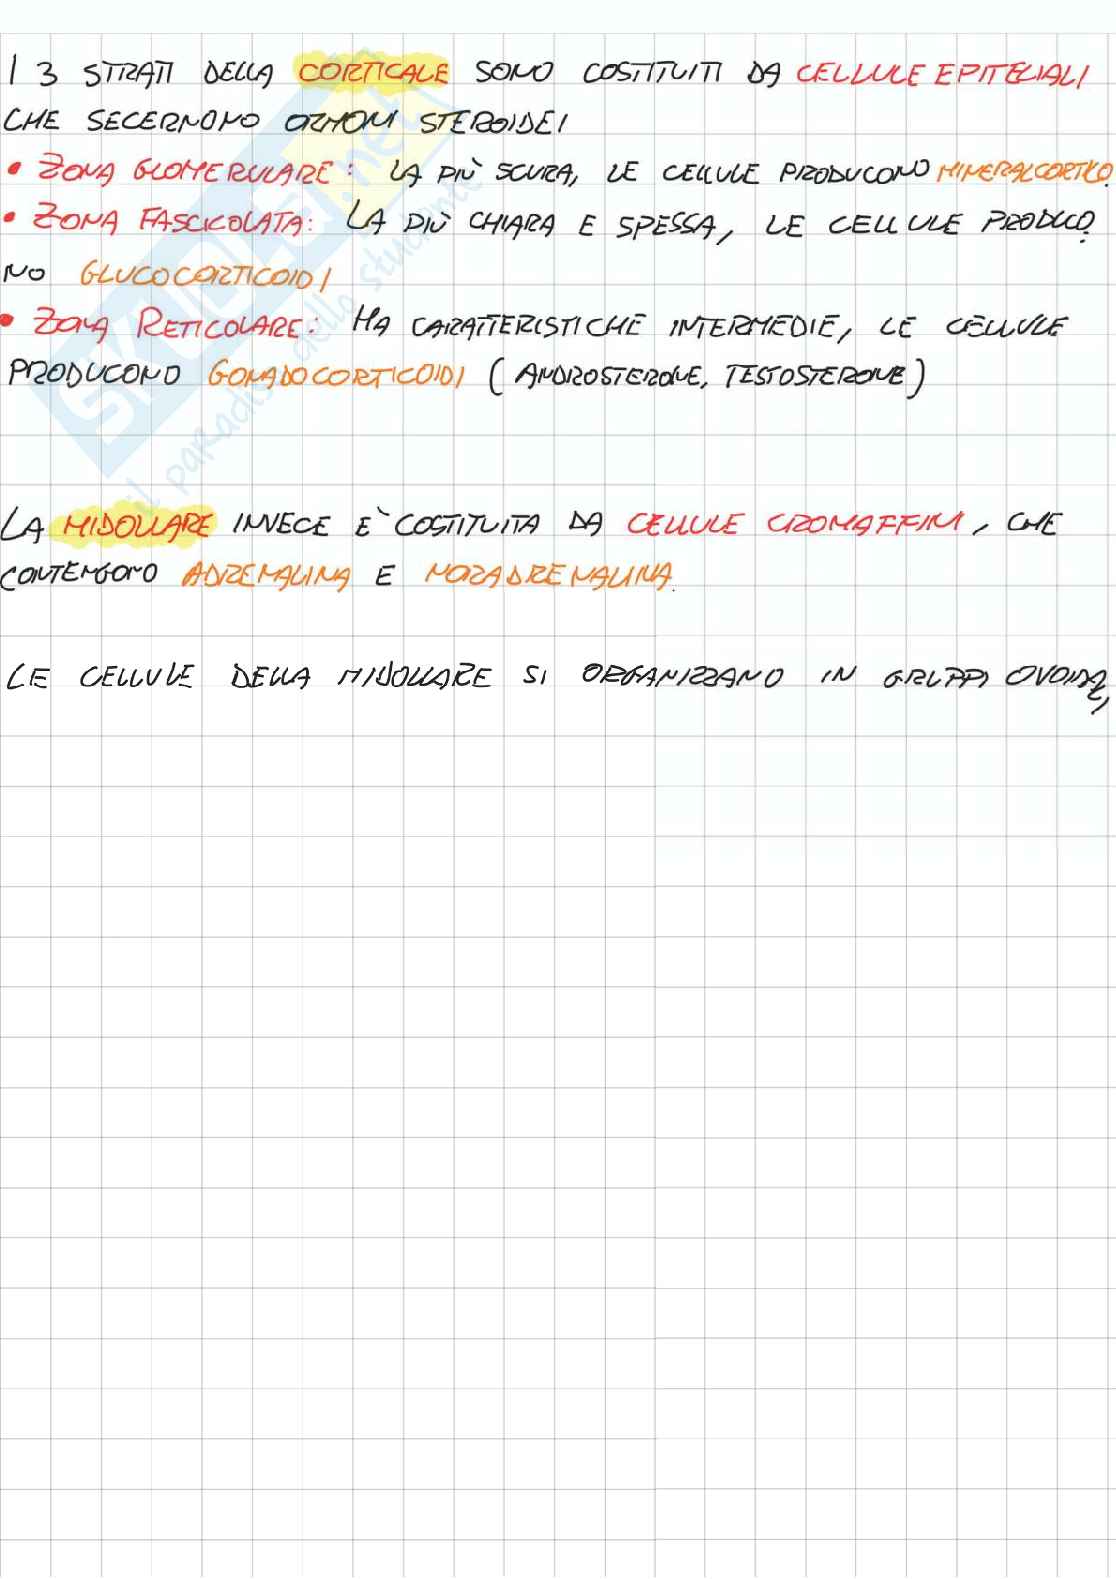 I 3 STRATI DELLA CORTICALE SONO COSTITUITI DA CELLULE EPITELIALI
CHE SECERNONO ORMONI STEROIDEI
• ZONA GLOMERULARE: LA PIÙ SCURA, LE CELLULE PRODUCONO MINERALCORTICO
• ZONA FASCICOLATA: LA PIÙ CHIARA E SPESSA, LE CELLULE PRODUCO
NO GLUCOCORTICOIDI
• ZONA RETICOLARE: HA CARATTERISTICHE INTERMEDIE, LE CELLULE
PRODUCONO GONADOCORTICOIDI (ANDROSTERONE, TESTOSTERONE)
LA MIDOLLARE INVECE E' COSTITUITA DA CELLULE CROMAFFINI, CHE
CONTENGONO ADRENALINA E NORADRENALINA.
LE CELLULE DELLA MIDOLLARE SI ORGANIZZANO IN GRUPPI OVOIDALI,
SKUOLA.net
il paradiso dello studente